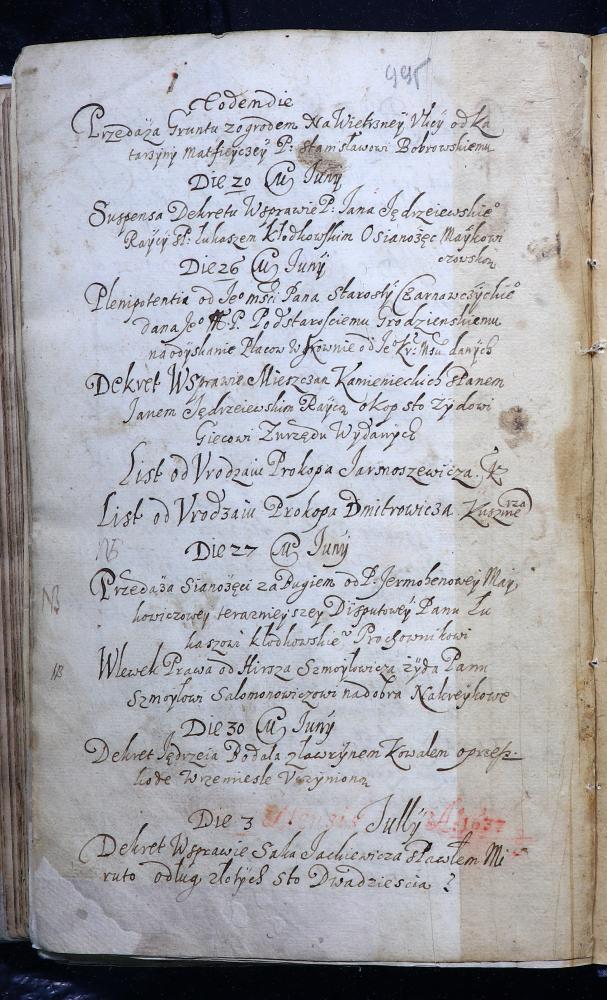 995
Eodem die
Przedaża Gruntu z ogrodem Na Wietrzney Vlicy od Ka
tarzyny Matfieyczey P: Stanisławowi Bobrowskiemu
Die 20 Juny
Suspensa Dekretu W sprawie P: Jana Jędrzeiewskieo
Raycy sP: Łukaszem Kłodkowskim O sianożęc Maykowi
czowską
Die 26 Juny
Plenipotentia od Jeo Mści Pana Starosty Czarnawczyckieo
dana Jeo M.P. Podstarościemu Grodzienskiemu
na odyskanie Placow W Kownie od Jeo danych
Dekret W sprawie Mieszczan Kamienieckich sPanem
Janem Jędrzeiewskim Raycą o kop sto żydowi
Giecowi Z urzędu Wydanych
List od Vrodzaiu Prokopa Jarmoszewicza
List od Vrodzaiu Prokopa Dmitrowicza Kuszne
rza
NB
Die 27 Juny
NB
Przedaża Sianożęci za Bugiem od P. Jermohenowey May
kowiczowey terazniejszey Disputowey Panu Łu
kaszowi Kłodkowskieo Prochownikowi
NB
Wlewek Prawa od Hirsza Szmoyłowicza żyda Panu
Szmoyłowi Salomonowiczowi na dobra
Die 30 Juny
Dekret Jędrzeia Bodala z Ławrynem Kowalem o przesz-
kode W rzemiesle Vczynioną
Die 3 Mensis Jully A: 1637
Dekret W sprawie Saka Jackiewicza sPawłem Mi
ruto o dług złotych sto Dwadziescia